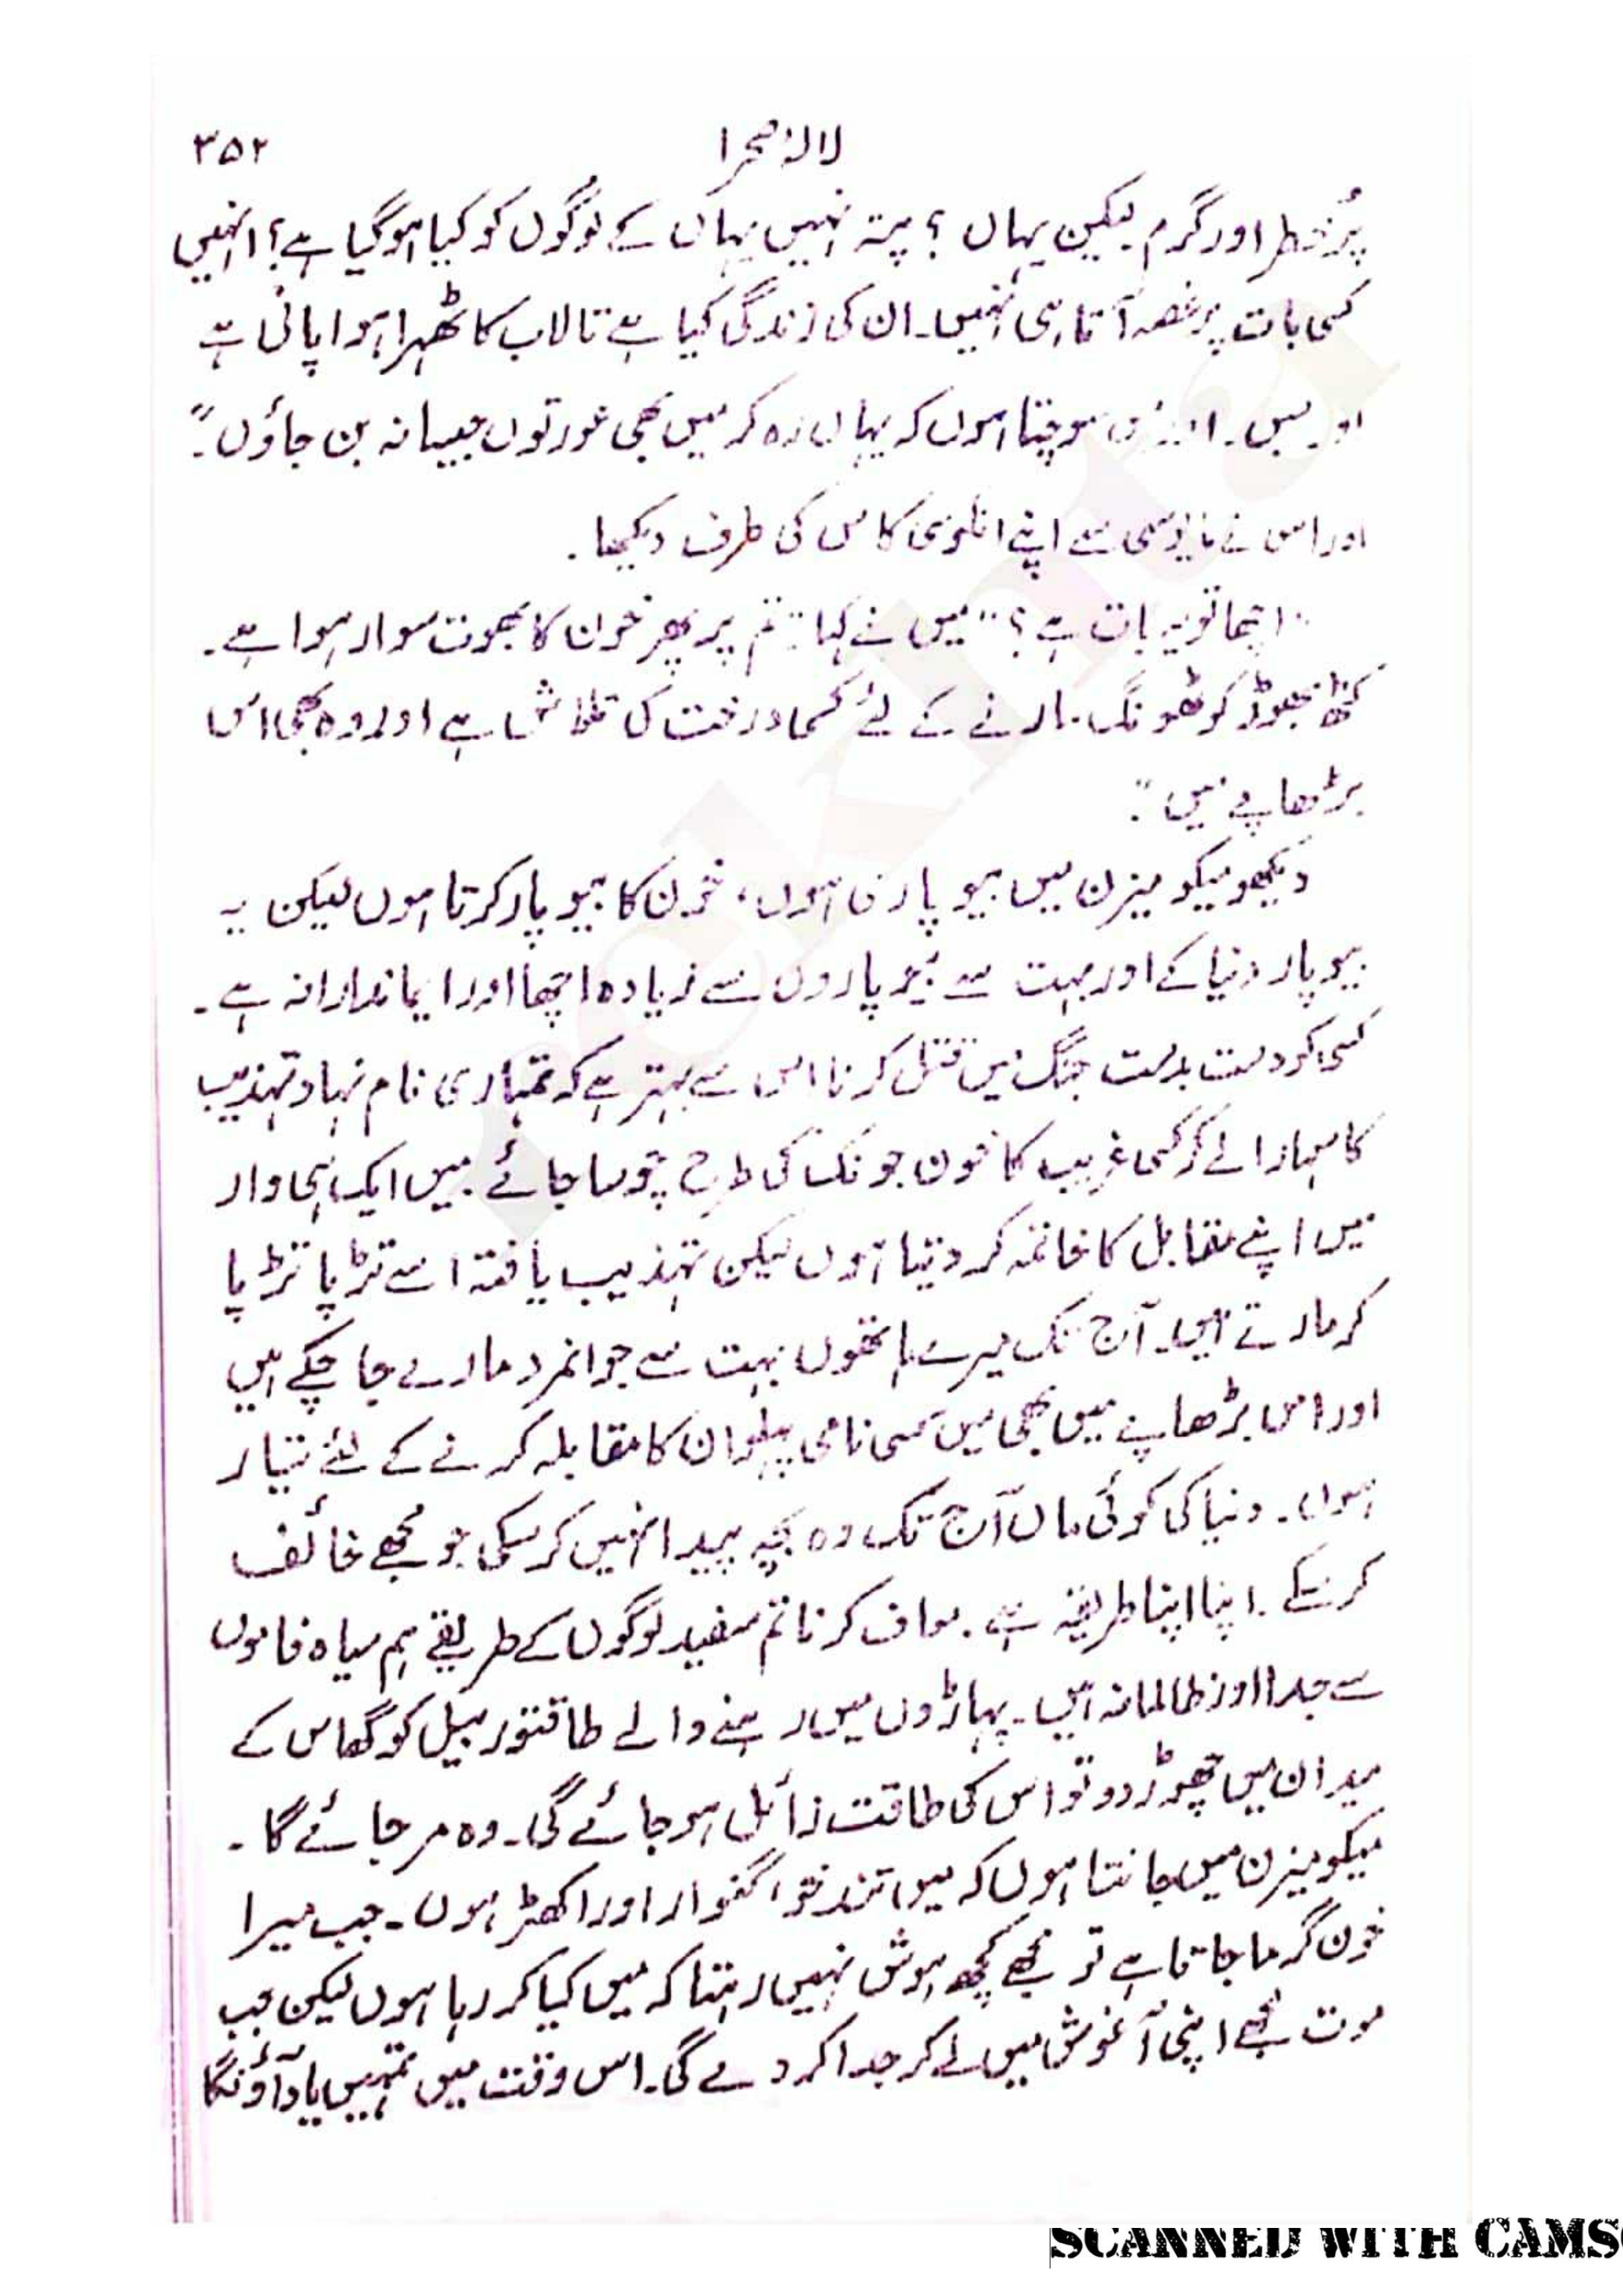 لالۂ صحرا ۳۵۲
پُرخطر اور گرم لیکن یہاں ؟ پتہ نہیں یہاں کے لوگوں کو کیا ہو گیا ہے؟ انہیں
کسی بات پر غصہ آتا ہی نہیں۔ ان کی زندگی کیا ہے تالاب کا ٹھہرا ہوا پانی ہے
اور بس۔ سوچتا ہوں کہ یہاں رہ کر میں بھی عورتوں جیسا نہ بن جاؤں۔"
اور اس نے مایوسی سے اپنے انکوسی کاس کی طرف دیکھا۔
"اچھا تو یہ بات ہے؟" میں نے کہا۔ "تم پر پھر خون کا بھوت سوار ہوا ہے۔
کٹھ پھوڑ کو ٹھونگ مارنے کے لئے کسی درخت کی تلاش ہے اور وہ بھی اس
بڑھاپے میں۔"
دیکھو میکو میزن میں بیوپاری ہوں، خون کا بیوپار کرتا ہوں لیکن یہ
بیوپار دنیا کے اور بہت سے بیوپاروں سے زیادہ اچھا اور ایماندارانہ ہے۔
کسی کو دست بدست جنگ میں قتل کرنا اس سے بہتر ہے کہ تمہاری نام نہاد تہذیب
کا سہارا لے کر کسی غریب کا خون جونک کی طرح چوسا جائے۔ میں ایک ہی وار
میں اپنے مقابل کا خاتمہ کر دیتا ہوں لیکن تہذیب یافتہ اسے تڑپا تڑپا
کر مارتے ہیں۔ آج تک میرے ہاتھوں بہت سے جوانمرد مارے جا چکے ہیں
اور اس بڑھاپے میں بھی میں کسی نامی پہلوان کا مقابلہ کرنے کے لئے تیار
ہوں۔ دنیا کی کوئی ماں آج تک وہ بچہ پیدا نہیں کر سکی جو مجھے خائف
کر سکے۔ اپنا اپنا طریقہ ہے۔ معاف کرنا تم سفید لوگوں کے طریقے ہم سیاہ فاموں
سے جدا اور ظالمانہ ہیں۔ پہاڑوں میں رہنے والے طاقتور بیل کو گھاس کے
میدان میں چھوڑ دو تو اس کی طاقت زائل ہو جائے گی۔ وہ مر جائے گا۔
میکو میزن میں جانتا ہوں کہ میں تند خو، گنوار اور اکھڑ ہوں۔ جب میرا
خون گرما جاتا ہے تو مجھے کچھ ہوش نہیں رہتا کہ میں کیا کر رہا ہوں لیکن جب
موت مجھے اپنی آغوش میں لے کر جدا کر دے گی۔ اس وقت میں تمہیں یاد آؤنگا
SCANNED WITH CAMS